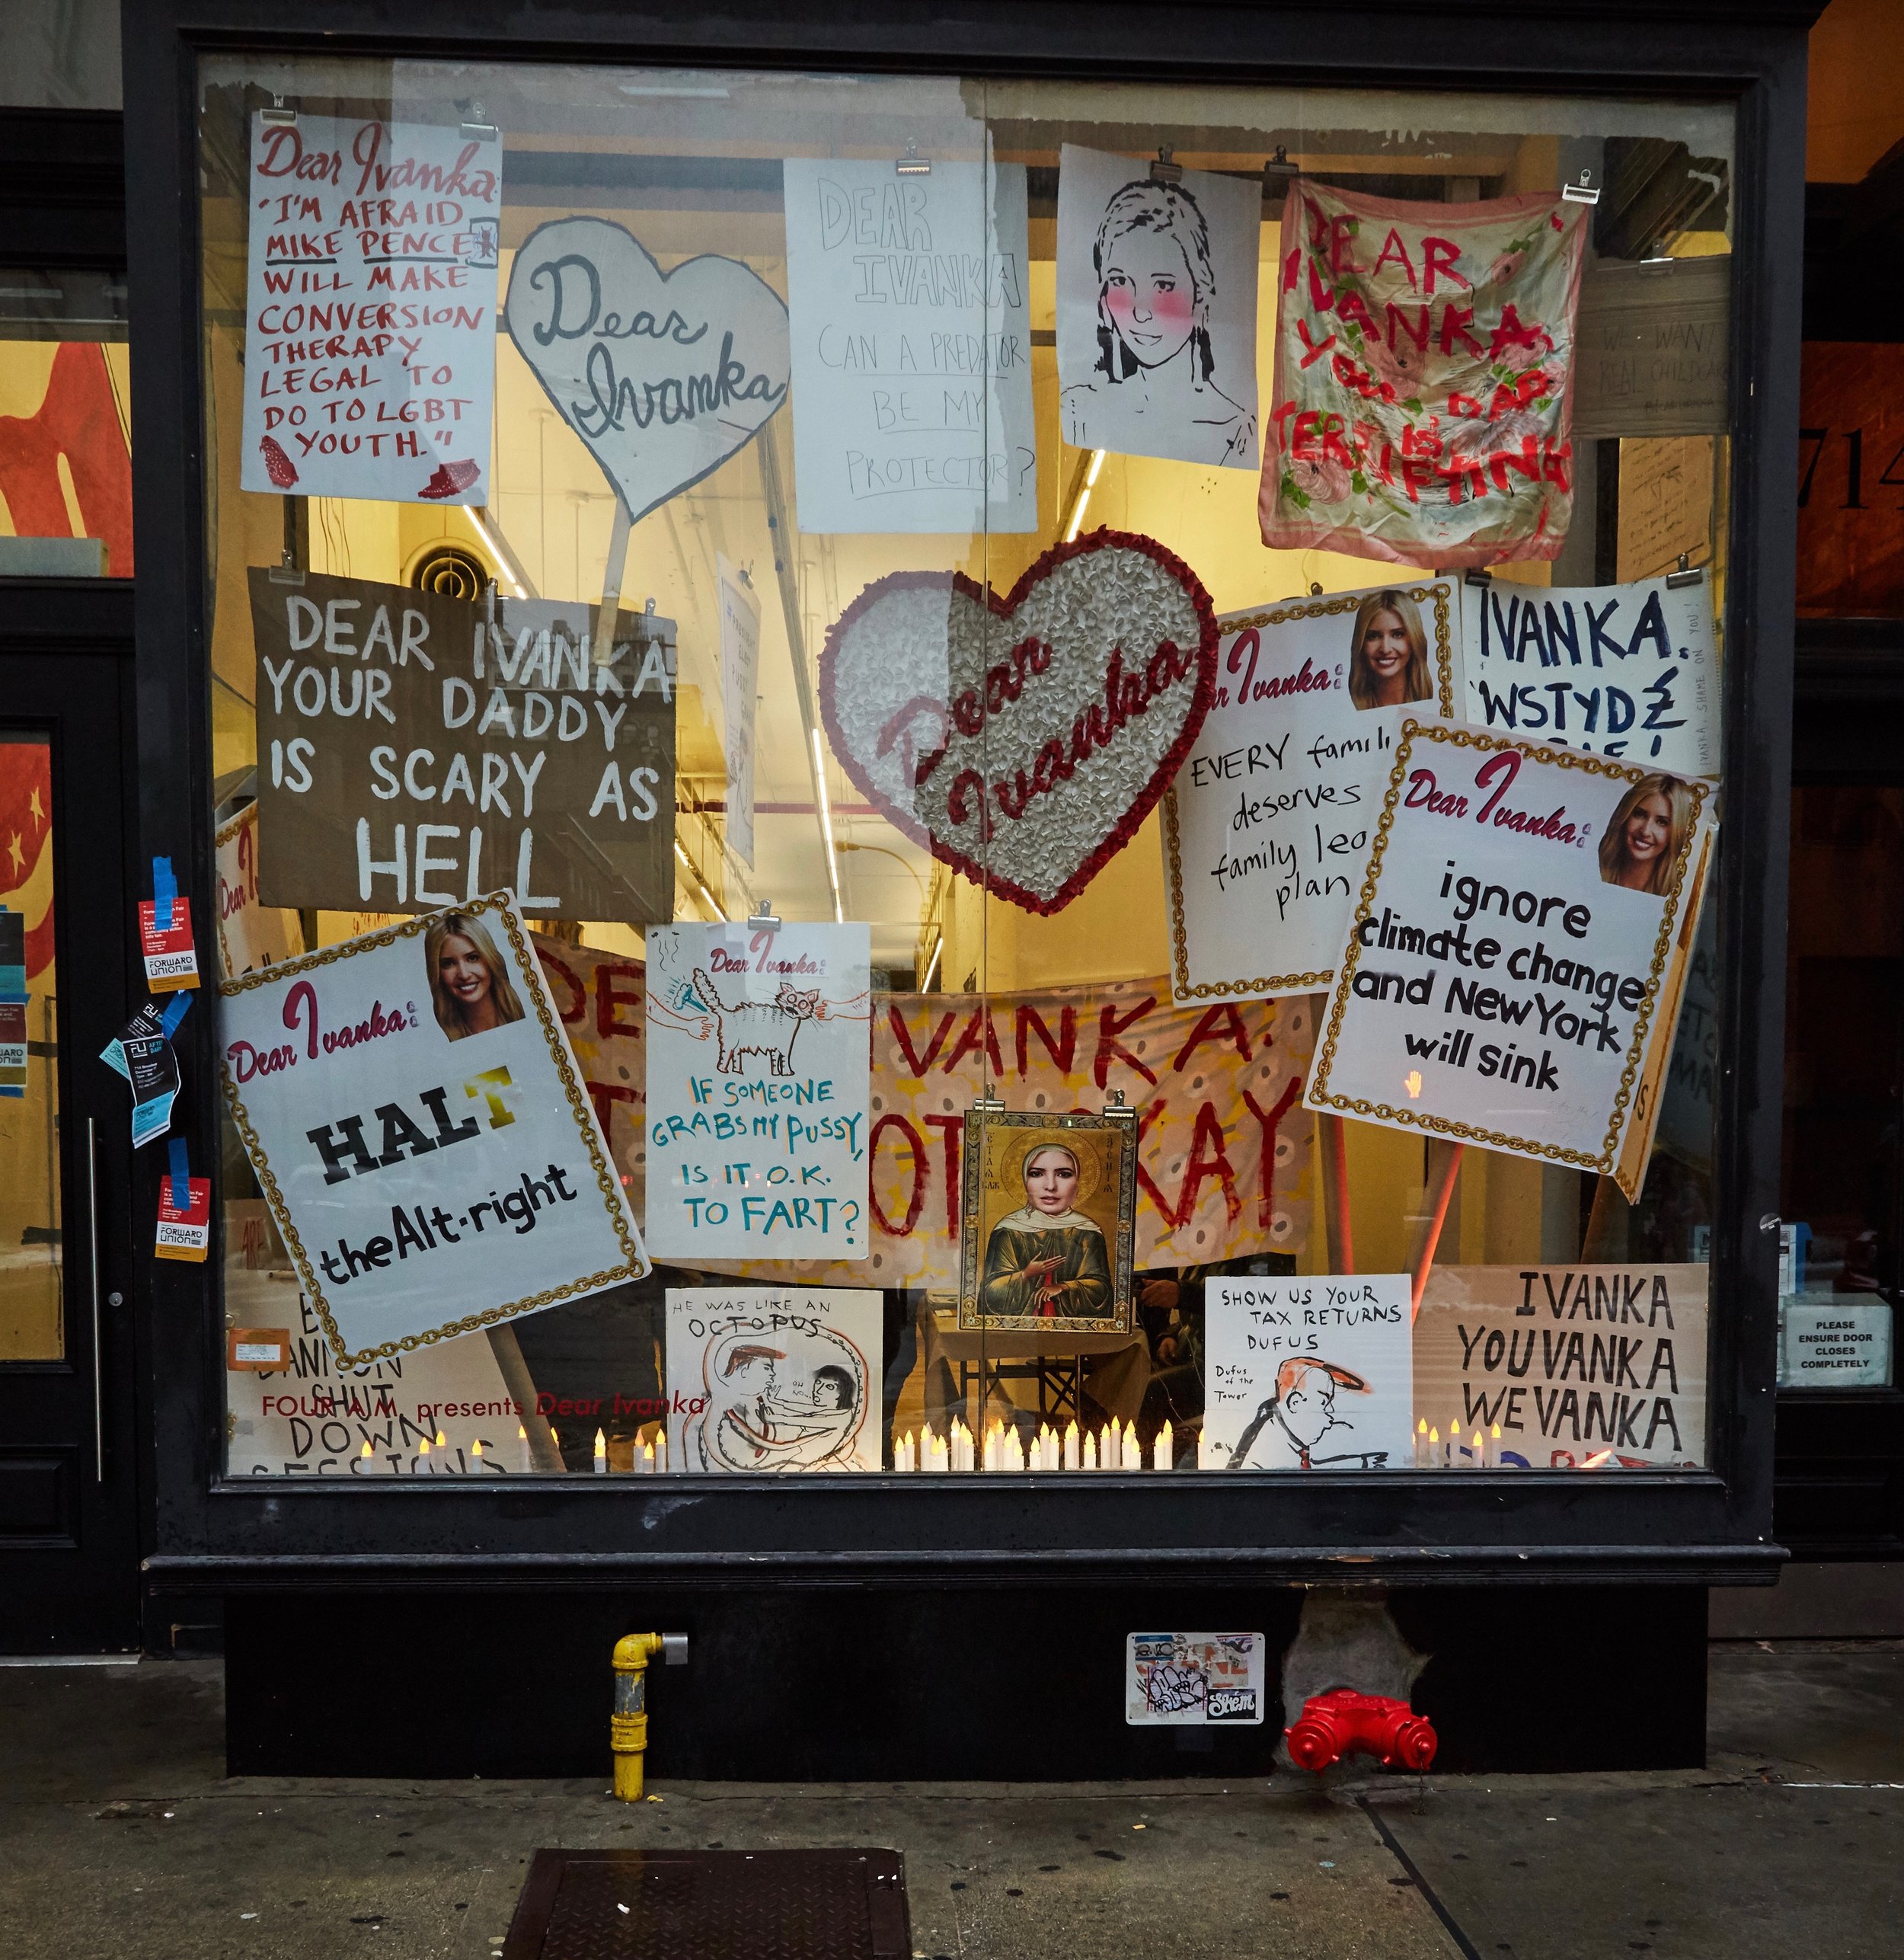 Dear Ivanka
"I'M AFRAID
MIKE PENCE
WILL MAKE
CONVERSION
THERAPY
LEGAL TO
DO TO LGBT
YOUTH."
Dear
Ivanka
DEAR
IVANKA
CAN A PREDATOR
BE MY
PROTECTOR?
DEAR
IVANKA
YOUR DAD
TERRIFYING
WE WANT
REAL CHILDCARE
714
DEAR IVANKA
YOUR DADDY
IS SCARY AS
HELL
Dear
Ivanka
Ivanka:
EVERY famili
deserves
family leo
plan
IVANKA.
WSTYDŹ
IVANKA, SHAME ON YOU!
Dear Ivanka:
ignore
climate change
and New York
will sink
Dear
FORWARD
UNION
FU
FORWARD
UNION
Dear Ivanka:
HALT
the Alt-right
Dear Ivanka:
IF SOMEONE
GRABS MY PUSSY,
IS IT O.K.
TO FART?
DE IVANKA:
T OT KAY
HE WAS LIKE AN
OCTOPUS
NO
SHOW US YOUR
TAX RETURNS
DUFUS
Dufus
of the
Tower
IVANKA
YOU VANKA
WE VANKA
SHUT
DOWN
SESSIONS
FOUR A.M. presents Dear Ivanka
PLEASE
ENSURE DOOR
CLOSES
COMPLETELY